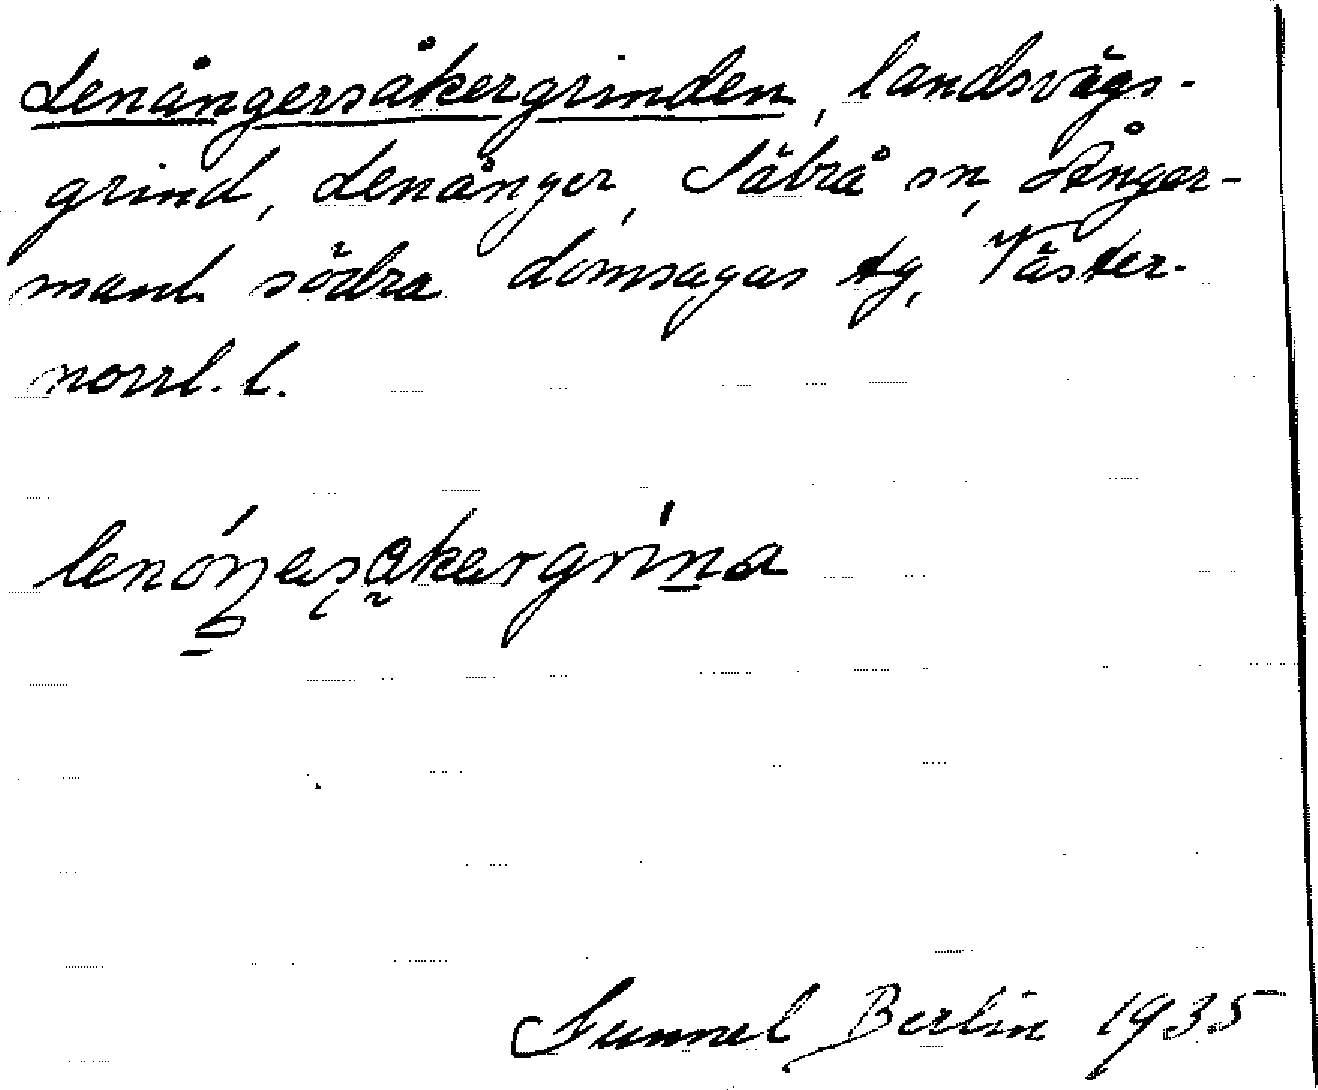 Lenångersåkergrinden, landsvägs-
grind, Lenånger, Säbrå sn, Ånger-
manl. södra domsagas tg, Väster-
norrl. l.
Gunnel Berlin 1935